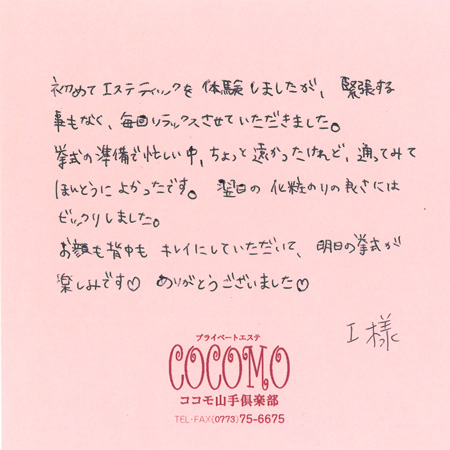 初めてエステティックを体験しましたが、緊張する
事もなく、毎回リラックスさせていただきました。
挙式の準備で忙しい中、ちょっと遠かったけれど、通ってみて
ほんとうによかったです。翌日の化粧のりの良さには
ビックリしました。
お顔も背中もキレイにしていただいて、明日の挙式が
楽しみです♡ ありがとうございました♡
I様
プライベートエステ
COCOMO
ココモ山手倶楽部
TEL・FAX(0773)75-6675